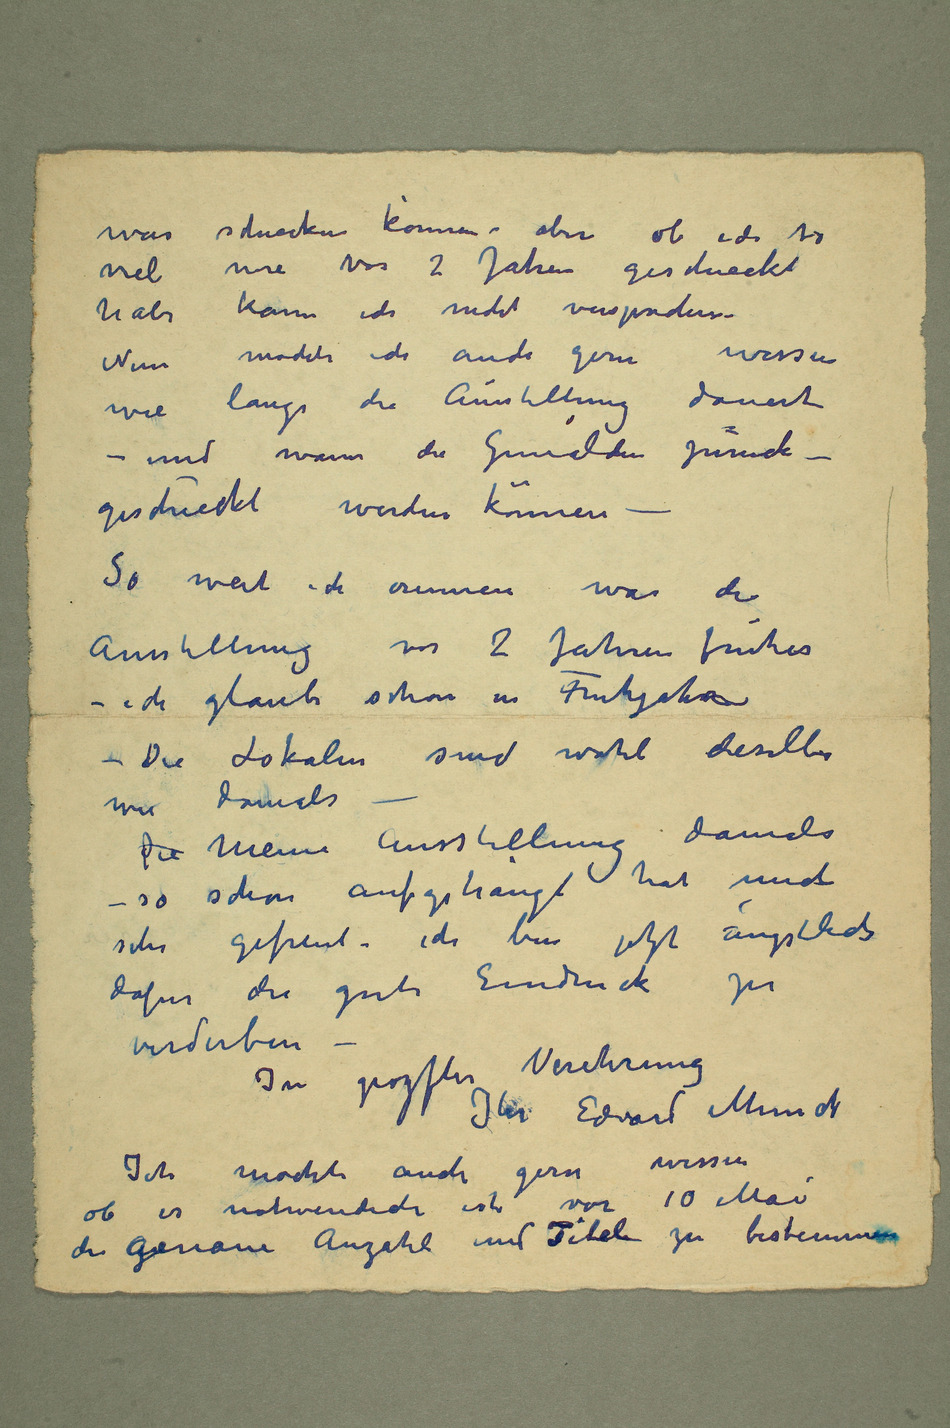 was schicken können – aber ob ich so
viel wie vor 2 Jahren geschickt
habe kann ich nicht versprechen –
Nun mochte ich auch gern wissen
wie lange die Ausstellung dauert
– und wann die Gemälden zürück –
geschückt werden können –
So weit ich erinnere war die
Ausstellung vor 2 Jahren früher
– ich glaube schon in Fruhjahr
– Die Lokalen sind wohl dieselbe
wie damals –
Die Meine Ausstellung damals
– so schon aufgehängt hat mich
sehr gefreut – ich bin jetzt ängstlich
dafur die gute Eindruck zu
verderben –
In Verehrung
Ihr Edvard Munch
Ich mochte auch gern wissen
ob es notwendich ist vor 10 Mai
die genaue Anzahl und Titeln zu bestemmen